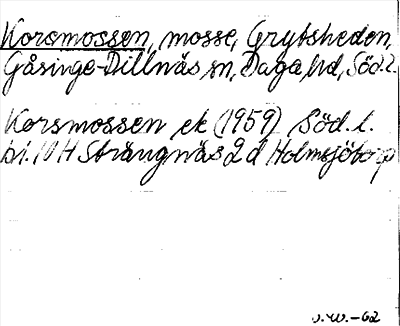 Korsmossen, mosse, Grytsheden,
Gåsinge-Dillnäs sn, Daga hd, Söd. l.
Korsmossen ek (1959) Söd. l.
bl. 10 H Strängnäs 2 d Holmsjötorp
J.W.-62